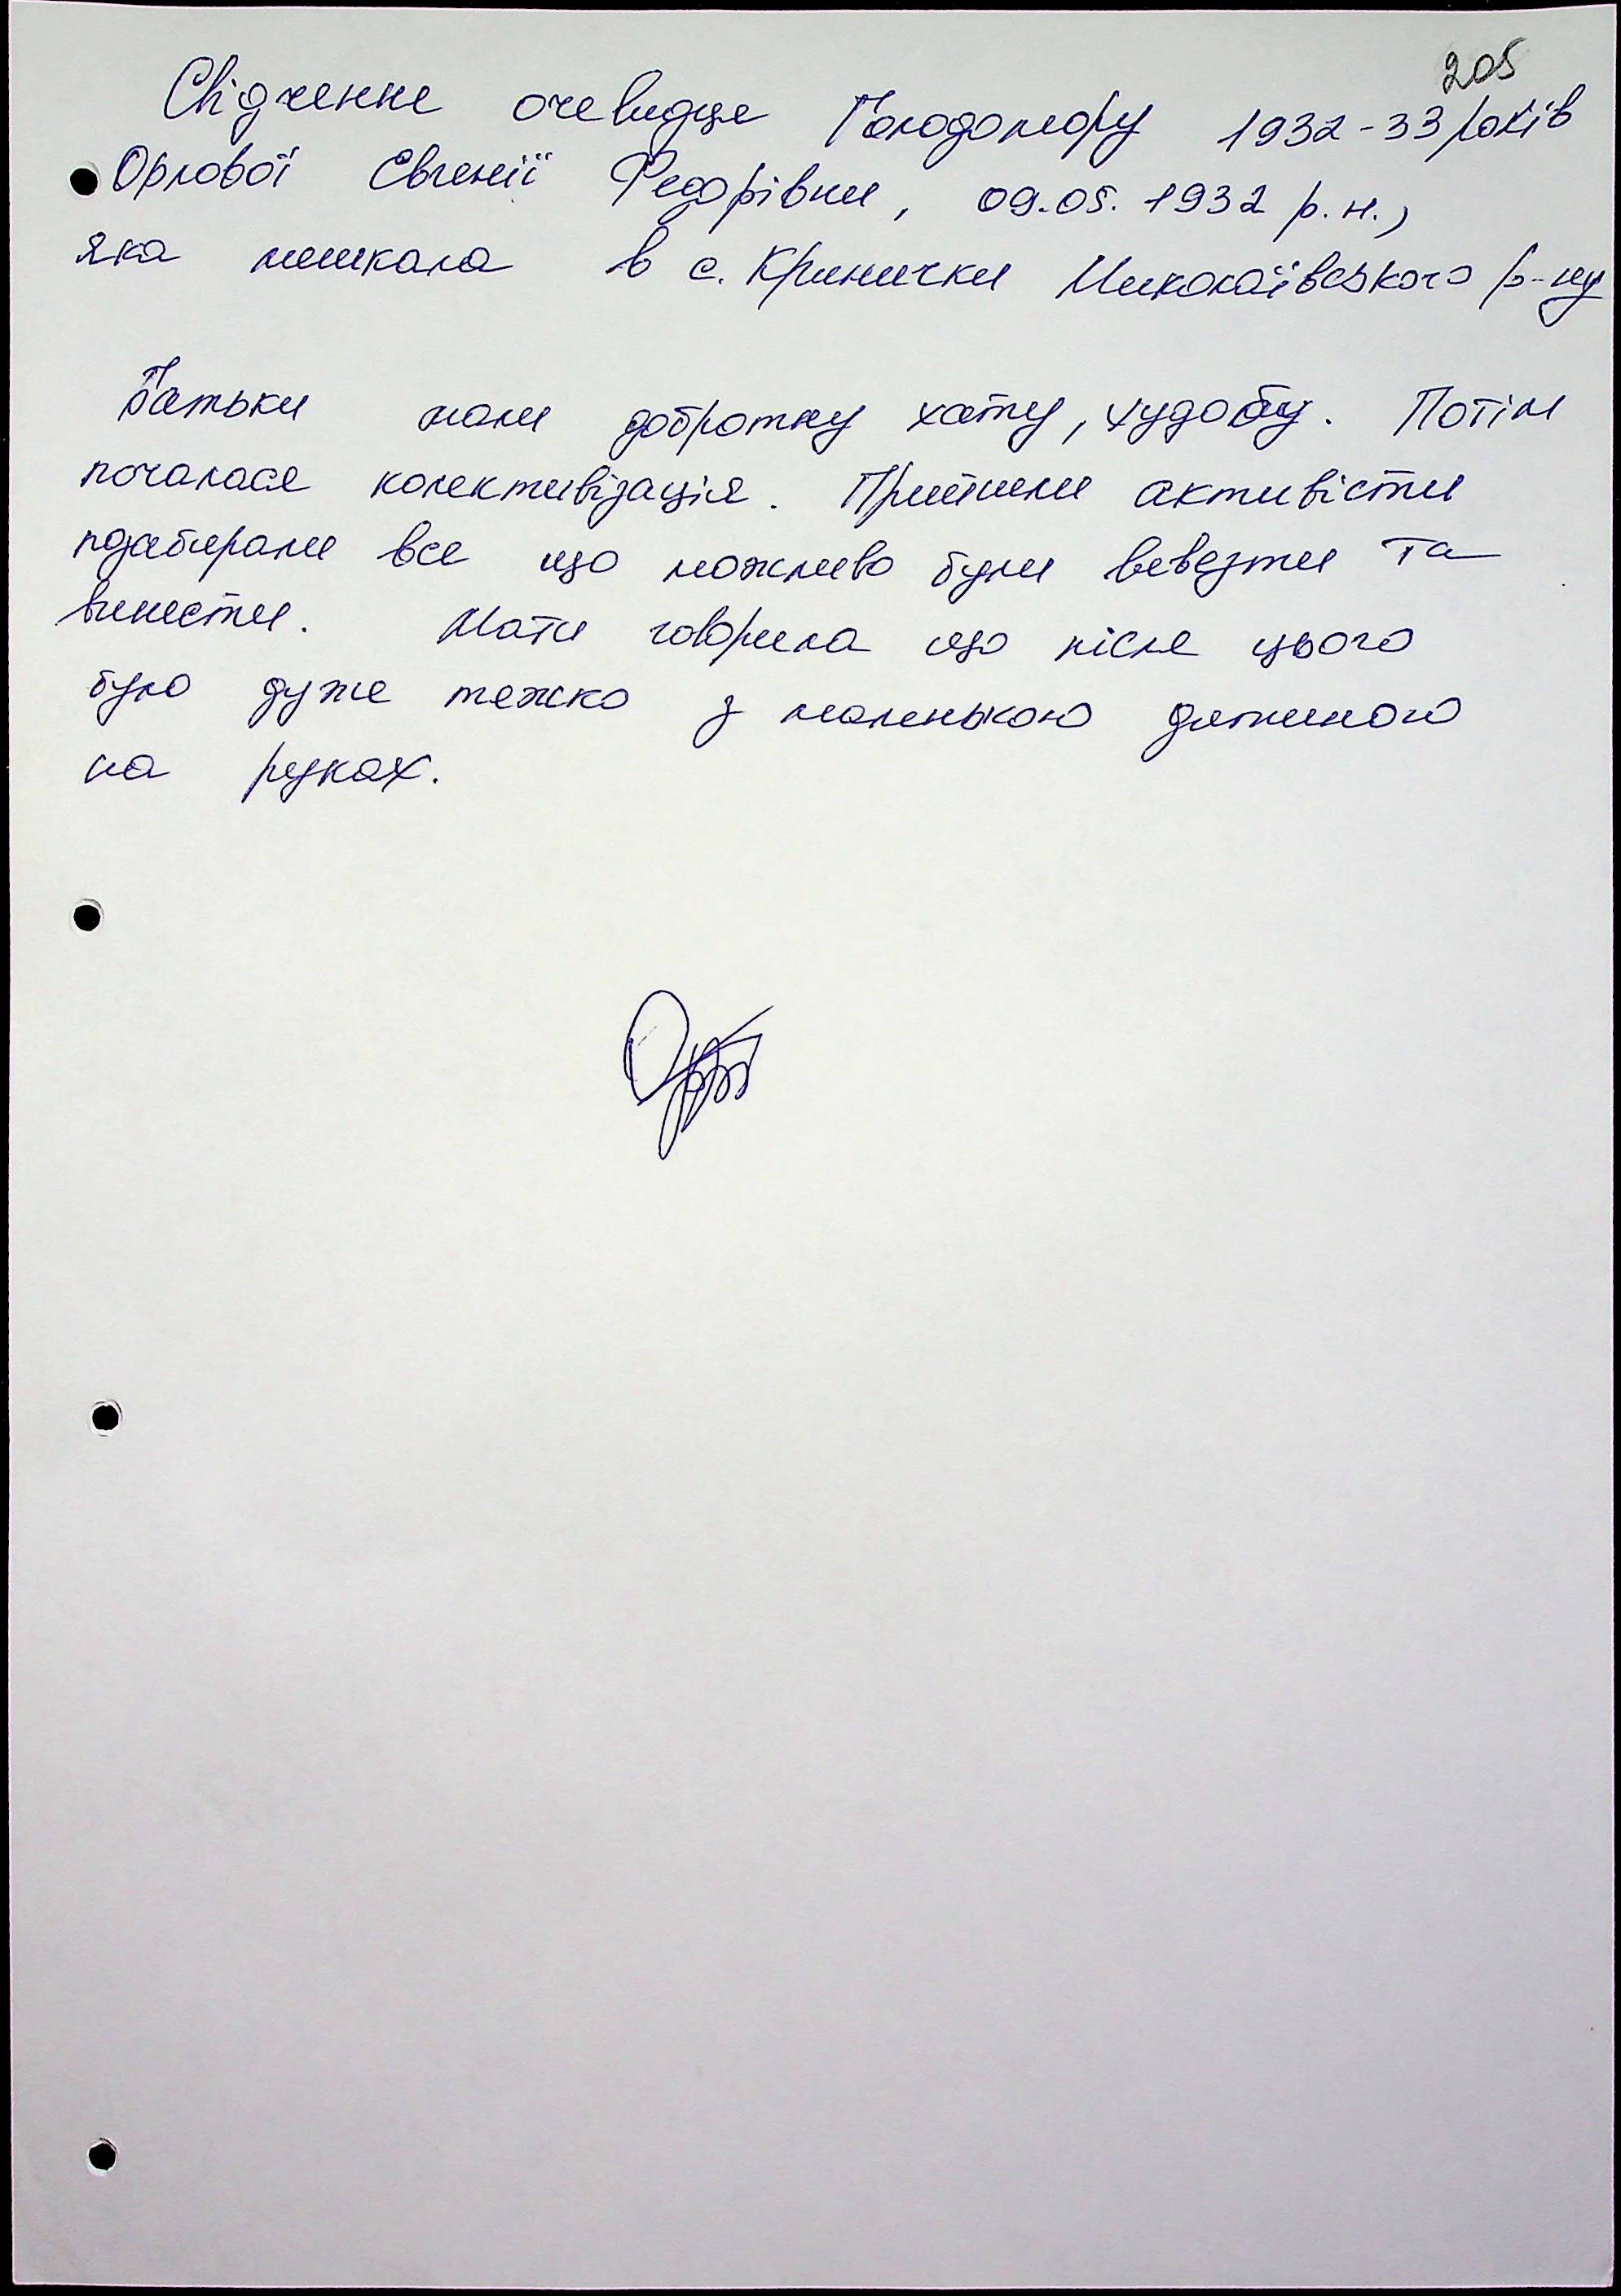 205
Свідчення очевидця Голодомору 1932-33 років
Орлової Євгенії Федорівни, 09.05.1932 р.н.,
яка мешкала в с. Кринички Миколаївського р-ну
Батьки мали добротну хату, худобу. Потім
почалася колективізація. Прийшли активісти
позабирали все що можливо були вевезти та
винести. Мати говорила що після цього
було дуже тяжко з маленькою дитиною
на руках.